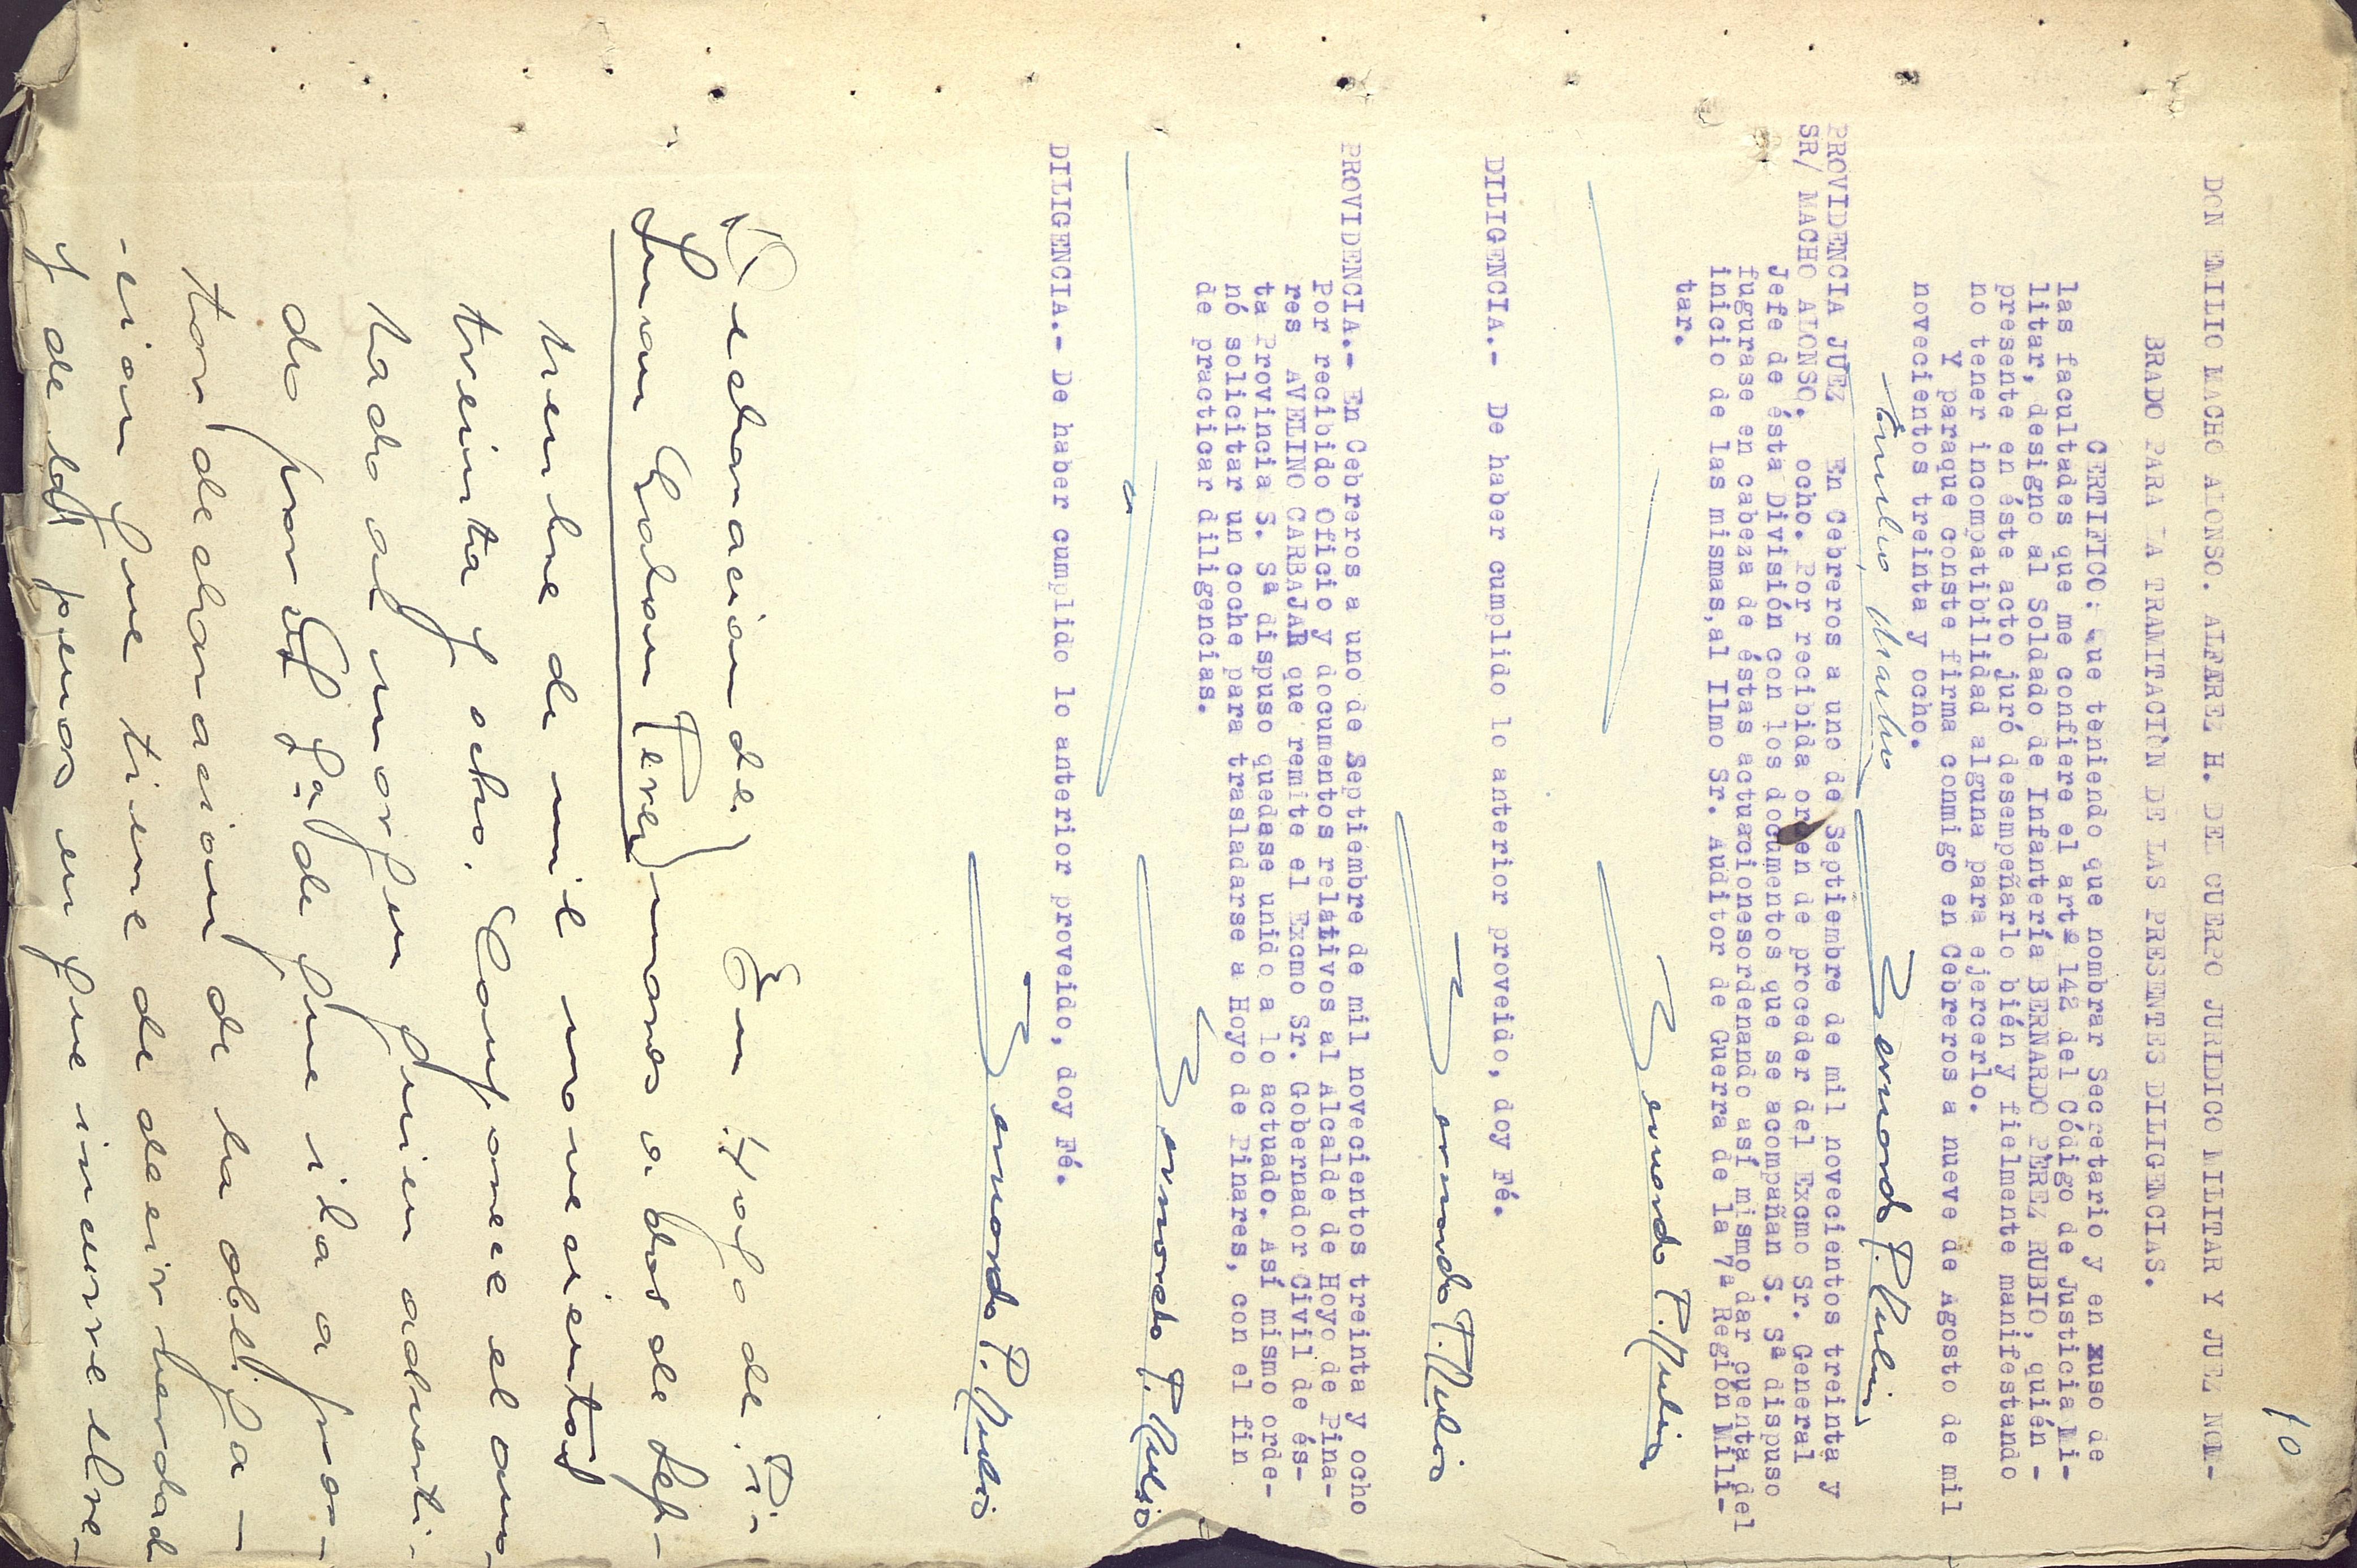 10
DON EMILIO MACHO ALONSO. ALFEREZ H. DEL CUERPO JURIDICO MILITAR Y JUEZ NOM-
BRADO PARA LA TRAMITACIÓN DE LAS PRESENTES DILIGENCIAS.
CERTIFICO: Que teniendo que nombrar Secretario y en xuso de
las facultades que me confiere el artº 142 del Código de Justicia Mi-
litar, designo al Soldado de Infantería BERNARDO PEREZ RUBIO, quién -
presente en éste acto juró desempeñarlo bién y fielmente manifestando
no tener incompatibilidad alguna para ejercerlo.
Y paraque conste firma conmigo en Cebreros a nueve de Agosto de mil
novecientos treinta y ocho.
Emilio Macho Bernardo P. Rubio
PROVIDENCIA JUEZ En Cebreros a uno de Septiembre de mil novecientos treinta y
SR/ MACHO ALONSO. ocho. Por recibida orden de proceder del Excmo Sr. General
Jefe de ésta División con los documentos que se acompañan S. Sª dispuso
fugurase en cabeza de éstas actuacionesordenando así mismo dar cuenta del
inicio de las mismas,al Ilmo Sr. Auditor de Guerra de la 7ª Región Mili-
tar.
Bernardo P. Rubio
DILIGENCIA.- De haber cumplido lo anterior proveido, doy Fé.
Bernardo P. Rubio
PROVIDENCIA.- En Cebreros a uno de Septiembre de mil novecientos treinta y ocho
Por recibido Oficio y documentos relativos al Alcalde de Hoyo de Pina-
res AVELINO CARBAJAR que remite el Excmo Sr. Gobernador Civil de és-
ta Provincia S. Sª dispuso quedase unido a lo actuado. Así mismo orde-
nó solicitar un coche para trasladarse a Hoyo de Pinares, con el fin
de practicar diligencias.
Bernardo P. Rubio
DILIGENCIA.- De haber cumplido lo anterior proveido, doy Fé.
Bernardo P. Rubio
Declaracion de En Hoyo de Pi-
Juan Galan nares a dos de Sep-
tiembre de mil novecientos
treinta y ocho. Compareee el ano-
tado al margen quien adverti-
do por S.Sª de que iba a pres-
tar declaracion de la obliga-
cion que tiene de decir verdad
y de las penas en que incurre el re-